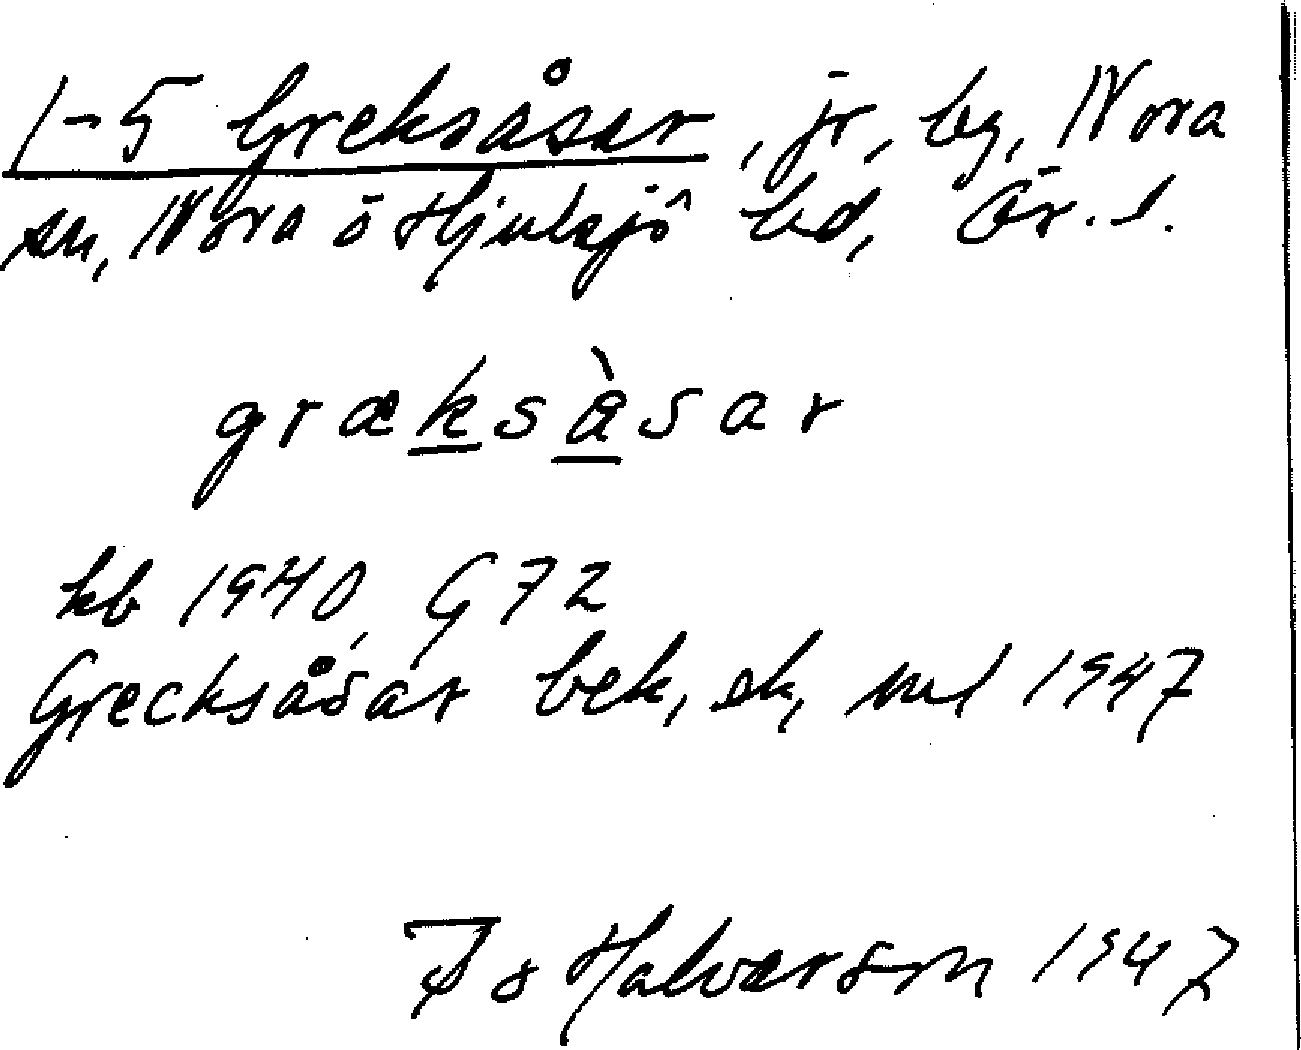 1-5 Greksåsar, jr, by, Nora
sn, Nora ö Hjulsjö bd, Ör. l.
græksåsar
kb 1940, G 72
Grecksåsar bek, ek, ml 1947
Jo Halvarson 1947